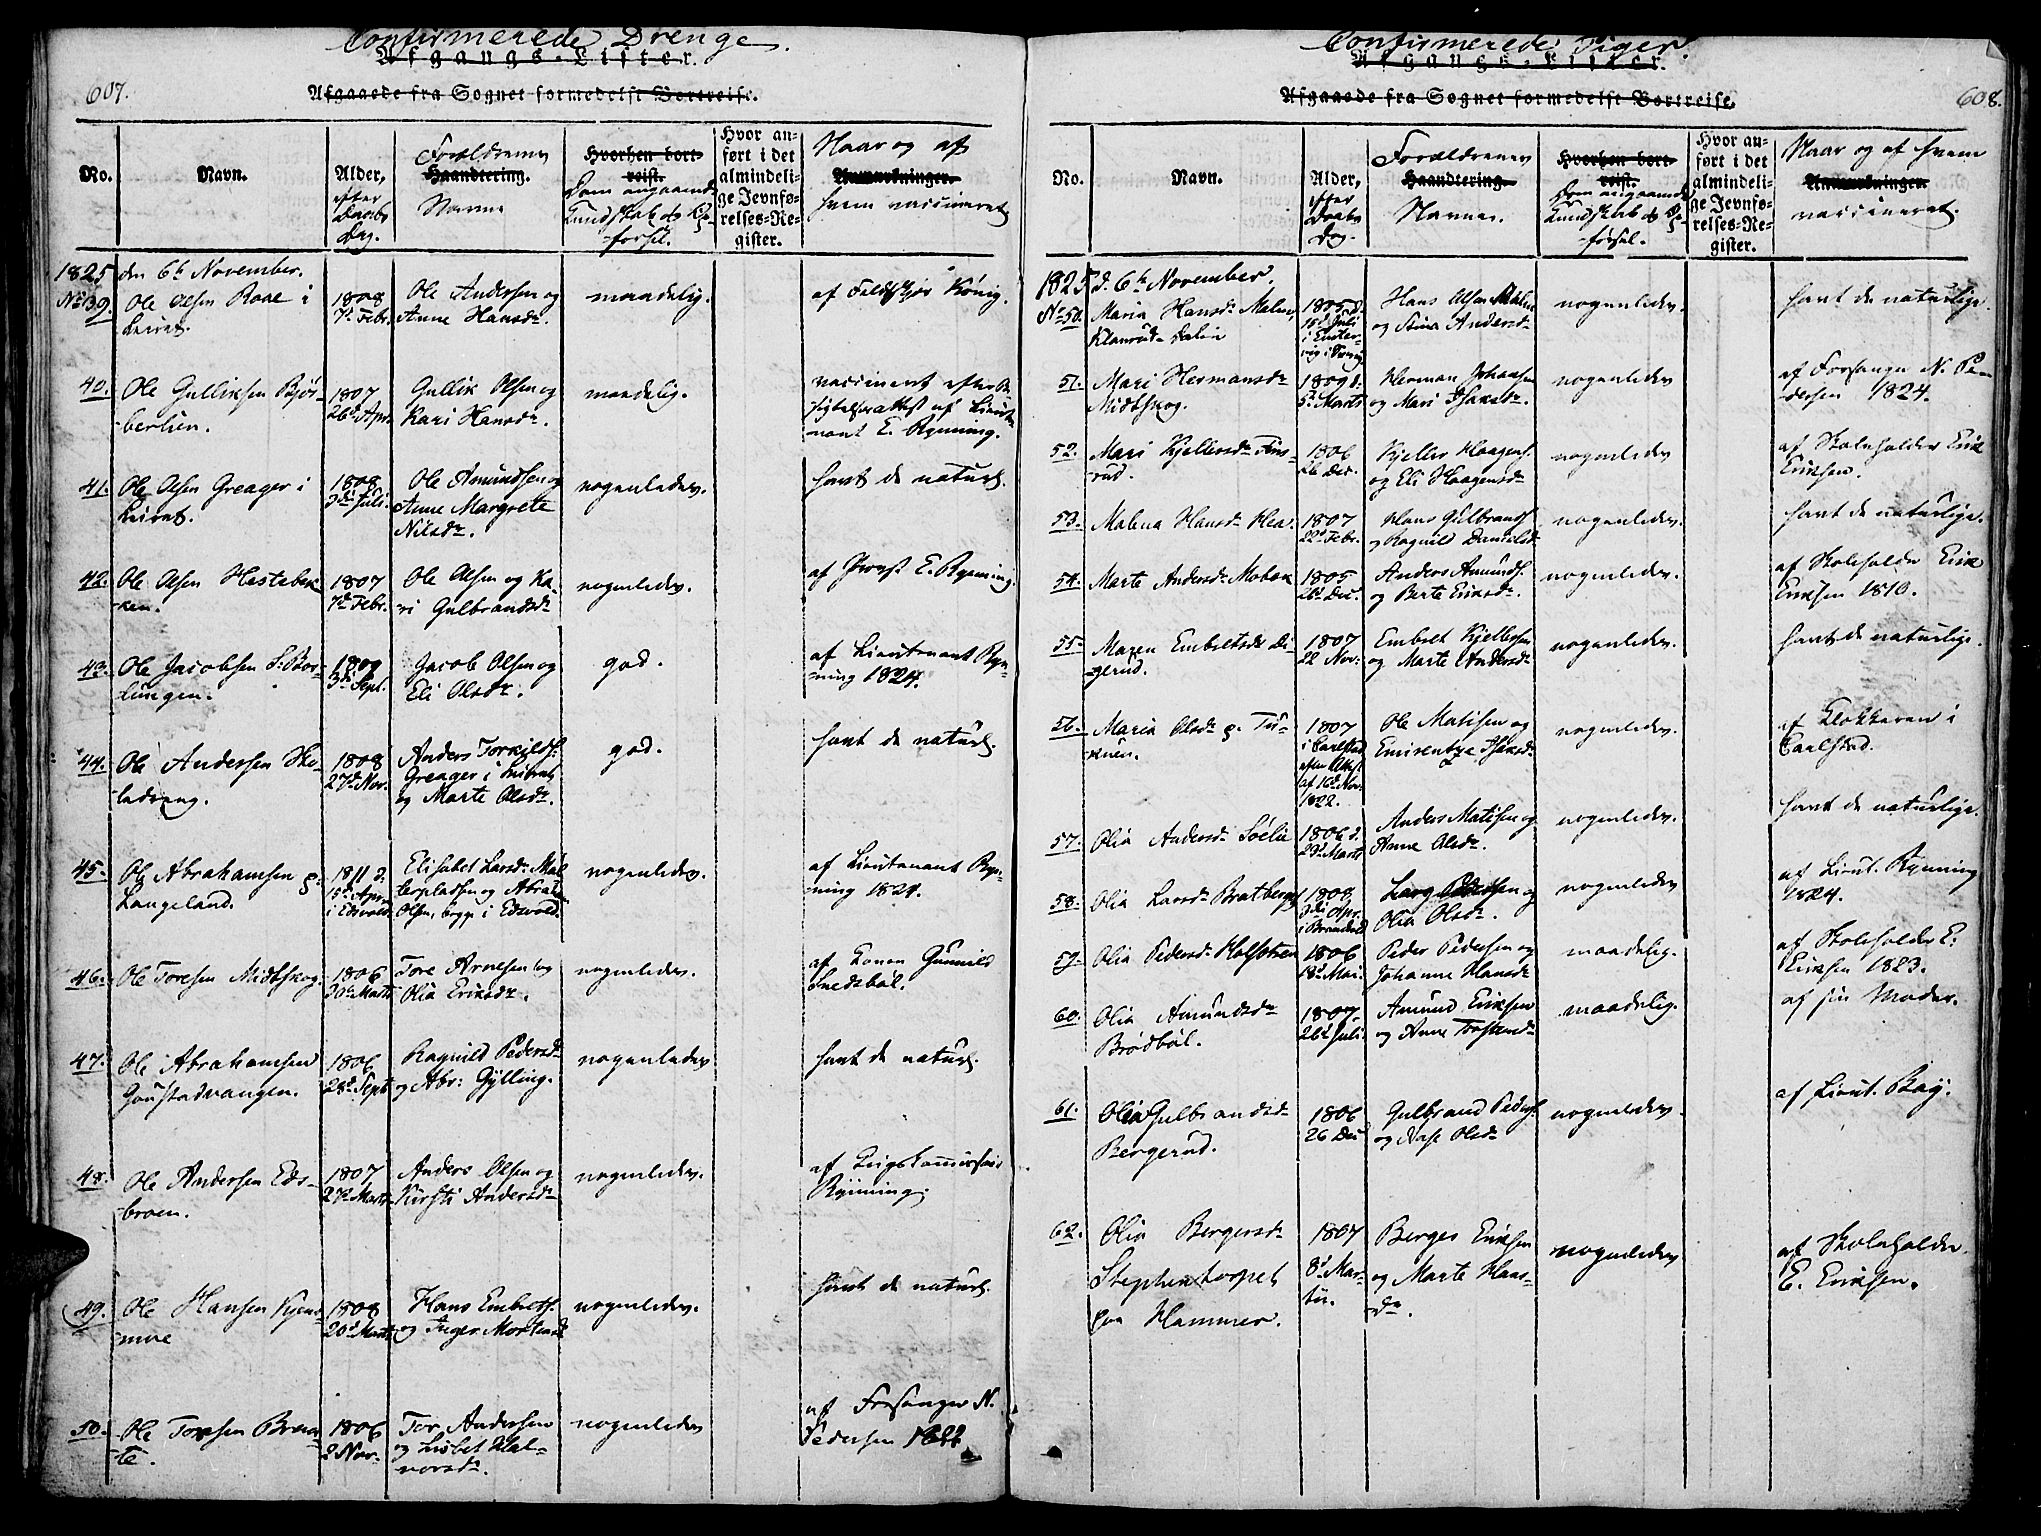 Confirmerede Drenge.
Afgangs-Lister.
607.
Afgaaede fra Sognet formedelst Bortreise.
No.
Navn.
Alder,
efter
Daabs
Dag.
Forældrenes
Haandtering.
Navne
Hvorhen bort-
reist.
Dom angaaende
Kundskab og Op-
-førsel.
Hvor an-
ført i det
almindeli-
ge Jevnfø-
relses-Re-
gister.
Naar og af
Anmærkninger.
hvem vaccineret
1825 den 6te November.
No 39. Ole Olsen Roae i
Leiret.
1808
7d Febr.
Ole Andersen og
Anne Hansdr.
maadelig.
af Feldskjær König.
40. Ole Gulliksen Bjør-
-berlien.
1807
26d Apr.
Gullik Olsen og
Kari Hansdr.
maadelig.
vaccineret efter
af Lieute-
-nant E. Rynning.
41. Ole Olsen Greager i
Leiret.
1808
3de Juli.
Ole Amundsen og
Anne Margrete
Nilsdr.
nogenledes.
havt de naturl.
42. Ole Olsen Hestebek-
-ken.
1807
7de Febr.
Ole Olsen og Ka-
-ri Gulbrandsdr
nogenledes.
af Provst E. Rynning.
43. Ole Jacobsen
1809
3de Sept.
Jacob Olsen og
Eli Olsdr.
god.
af Lieutenant Ryn-
-ning 1824.
44. Ole Andersen Sko-
ladseng.
1808
27de Nov.
Anders Torkjelds.
Greager i Leiret
og Marte Olsdr.
god.
havt de naturl.
45. Ole Abrahamsen
Langeland.
1811 d.
15d Apr.
i Edsvold.
Elisabet Larsdr
og Abrah.
Olsen, begge i Edsvold.
nogenledes.
af Lieutenant Ryn-
-ning 1824.
46. Ole Toresen Midtskog.
1806
30te Marts
Tore Arnesen og
Olia Eriksdr.
nogenledes.
af Konen Gunnild
Snedsbøl.
47. Ole Abrahamsen
Goustadvangen.
1806
28d Sept.
Ragnild Pedersdr
og Abr: Gylling.
nogenledes
havt de naturl.
48. Ole Andersen Eds-
-broen.
1807
27de Marts
Anders Olsen og
Kirsti Andersdr
nogenledes.
af Krigskommissair
Rynning.
49. Ole Hansen Kjens-
moe
1808
20d Marts
Hans Embrets.
og Inger Mortensd
nogenledes.
havt de naturl.
50. Ole Toresen Bran-
te.
1806
2 Nov.
Tor Andersen
og Lisbet Hal-
vorsdr.
nogenledes
af Forsanger N.
Pedersen 1822
Confirmerede Piger.
Afgangs-Lister.
608.
Afgaaede fra Sognet formedelst Bortreise.
No.
Navn.
Alder,
efter
Daabs
Dag.
Forældrenes
Haandtering.
Navne.
Hvorhen bort-
reist.
Dom angaaende
Kundskab og Op-
-førsel.
Hvor an-
ført i det
almindeli-
ge Jevnfø-
relses-Re-
gister.
Naar og af hvem
Anmærkninger.
vaccineret.
1825 d. 6te November.
No 50. Maria Hansdr Malm,
1805 d.
15d Juli
Hans Olsen Malm
og Stina Andersdr
nogenledes.
havt de naturlige.
51. Mari Hermansdr
Midtskog.
1809 d.
5te Marts
Herman Johansen
og Mari Isaksdr.
nogenledes
af Forsanger N. Pe-
-dersen 1824.
52. Mari Kjellersdr Fins-
-rud.
1806
26 Dec.
Kjeller Haagens.
og Eli Haagensdr
nogenledes
af Skoleholder Erik
Eriksen.
53. Malena Hansdr Hea.
1807
22d Febr.
Hans Gulbrands.
og Ragnild Danielsdr
nogenledes.
havt de naturlige.
54. Marte Andersdr Mobæk
1805
26d Dec.
Anders Amunds.
og Berte Eriksdr.
nogenledes.
af Skoleholder Erik
Eriksen 1810.
55. Maren Embretsdr Di-
-gerud.
1807
22 Nov.
Embret Kjeldsen
og Marte Andersdr
nogenledes.
havt de naturlige.
56. Maria Olsdr
1807
i Carlstad
efter Attest
af 16d Nov.
1822.
Ole Matisen og
Emerentze Isaksdr
nogenledes.
af Klokkeren i
Carlstad.
57. Olia Andersdr Søelie
1806 d.
23d Marts
Anders Matisen og
Anne Olsdr.
nogenledes.
havt de naturlige.
58. Olia Larsdr Bratberg
1808
3de Apr.
i Brandvold
Lars Pedersen og
Olia Olsdr.
nogenledes
af Lieut. Rynning
1824.
59. Olia Pedersdr Kolstoen
1806
18d Mai.
Peder Pedersen og
Johanne Hansdr
maadelig.
af Skoleholder E.
Eriksen 1823.
60. Olia Amundsdr
Brødbøl.
1807
26d Juli.
Amund Eriksen
og Anne Torstensdr
maadelig.
af sin Moder.
61. Olia Gulbrandsdr
Bergerud.
1806
26 Dec
Gulbrand Peders.
og Aase Olsdr
nogenledes.
af Lieut. Bay.
62. Olia Bergersdr
Stephenstorpet
paa Hammer.
1807
8d Mar-
tii.
Berger Eriksen
og Marte Hans-
dr.
nogenledes
af Skoleholder
E. Eriksen.